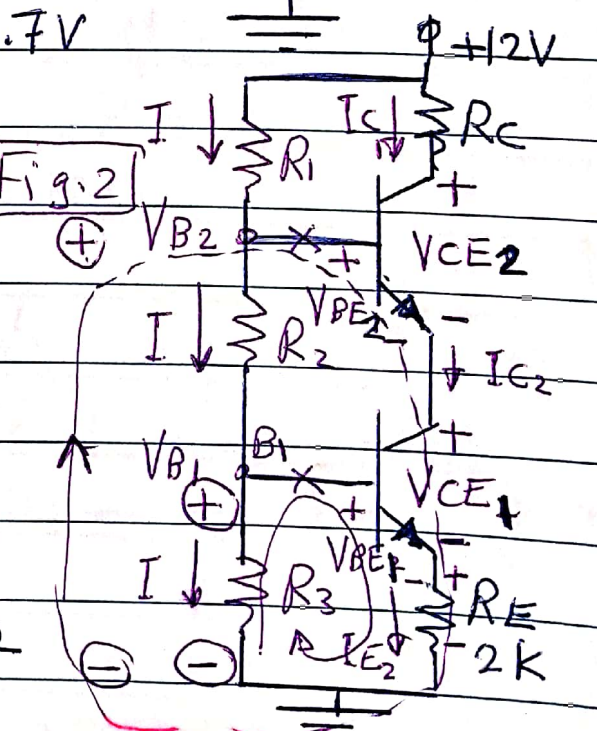 .7V
+12V
I
IC
RC
R1
Fig.2
+
+
VB2
+
VCE2
VBE2
-
I
R2
IC2
B1
+
VB1
+
+
VCE1
VBE1
-
+
-
I
R3
RE
IE2
-
2K
-
-